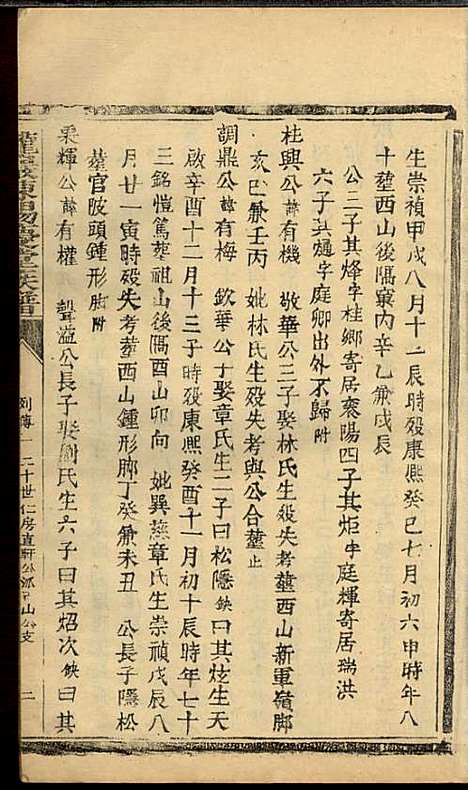 生崇禎甲戌八月十二辰時殁康熙癸巳七月初六申時年八
十塟西山後隔窠內辛乙兼戌辰
公二子其烽字桂鄉寄居襄陽四子其炬字庭輝寄居瑞洪
六子其熥字庭卿出外不歸附
桂與公諱有機 敬華公三子娶林氏生殁失考塟西山新重嶺脚
亥巳兼壬丙 妣林氏生殁失考與公合塟止
調鼎公諱有梅 欽華公子娶章氏生二子曰松隱鉠曰其炫生天
啟辛酉十二月十三子時殁康熙癸酉十一月初十辰時年七十
三銘愷篤塟祖山後隔酉山卯向 妣巽慈章氏生崇禎戊辰八
月廿一寅時殁失考塟西山鍾形脚丁癸兼未丑 公長子隱松
塟官陂頭鍾形脚附
奕輝公諱有權 聲溢公長子娶劉氏生六子曰其炤次鉠曰其
列傳 二十世仁房直軒公派 山公支 二